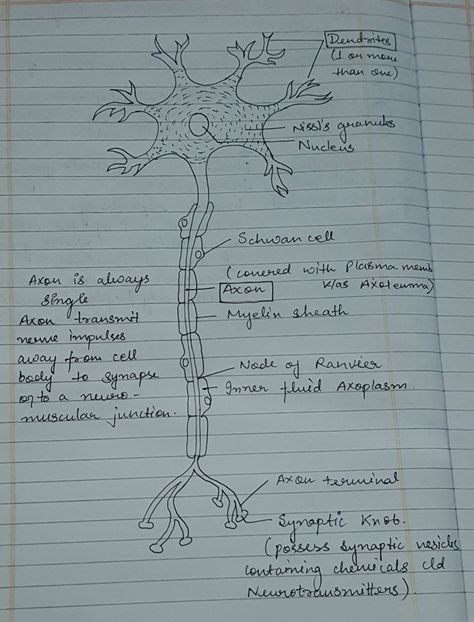 Dendrites
(1 or more
than one)
Nissl's granules
Nucleus
Schwan cell
(covered with Plasma memb
K/as Axolemma)
Axon
Myelin sheath
Axon is always
single
Axon transmit
nerve impulses
away from cell
body to synapse
or to a neuro-
muscular junction.
Node of Ranvier
Inner fluid Axoplasm
Axon terminal
Synaptic Knob.
(possess synaptic vesicles
containing chemicals cld
Neurotransmitters)